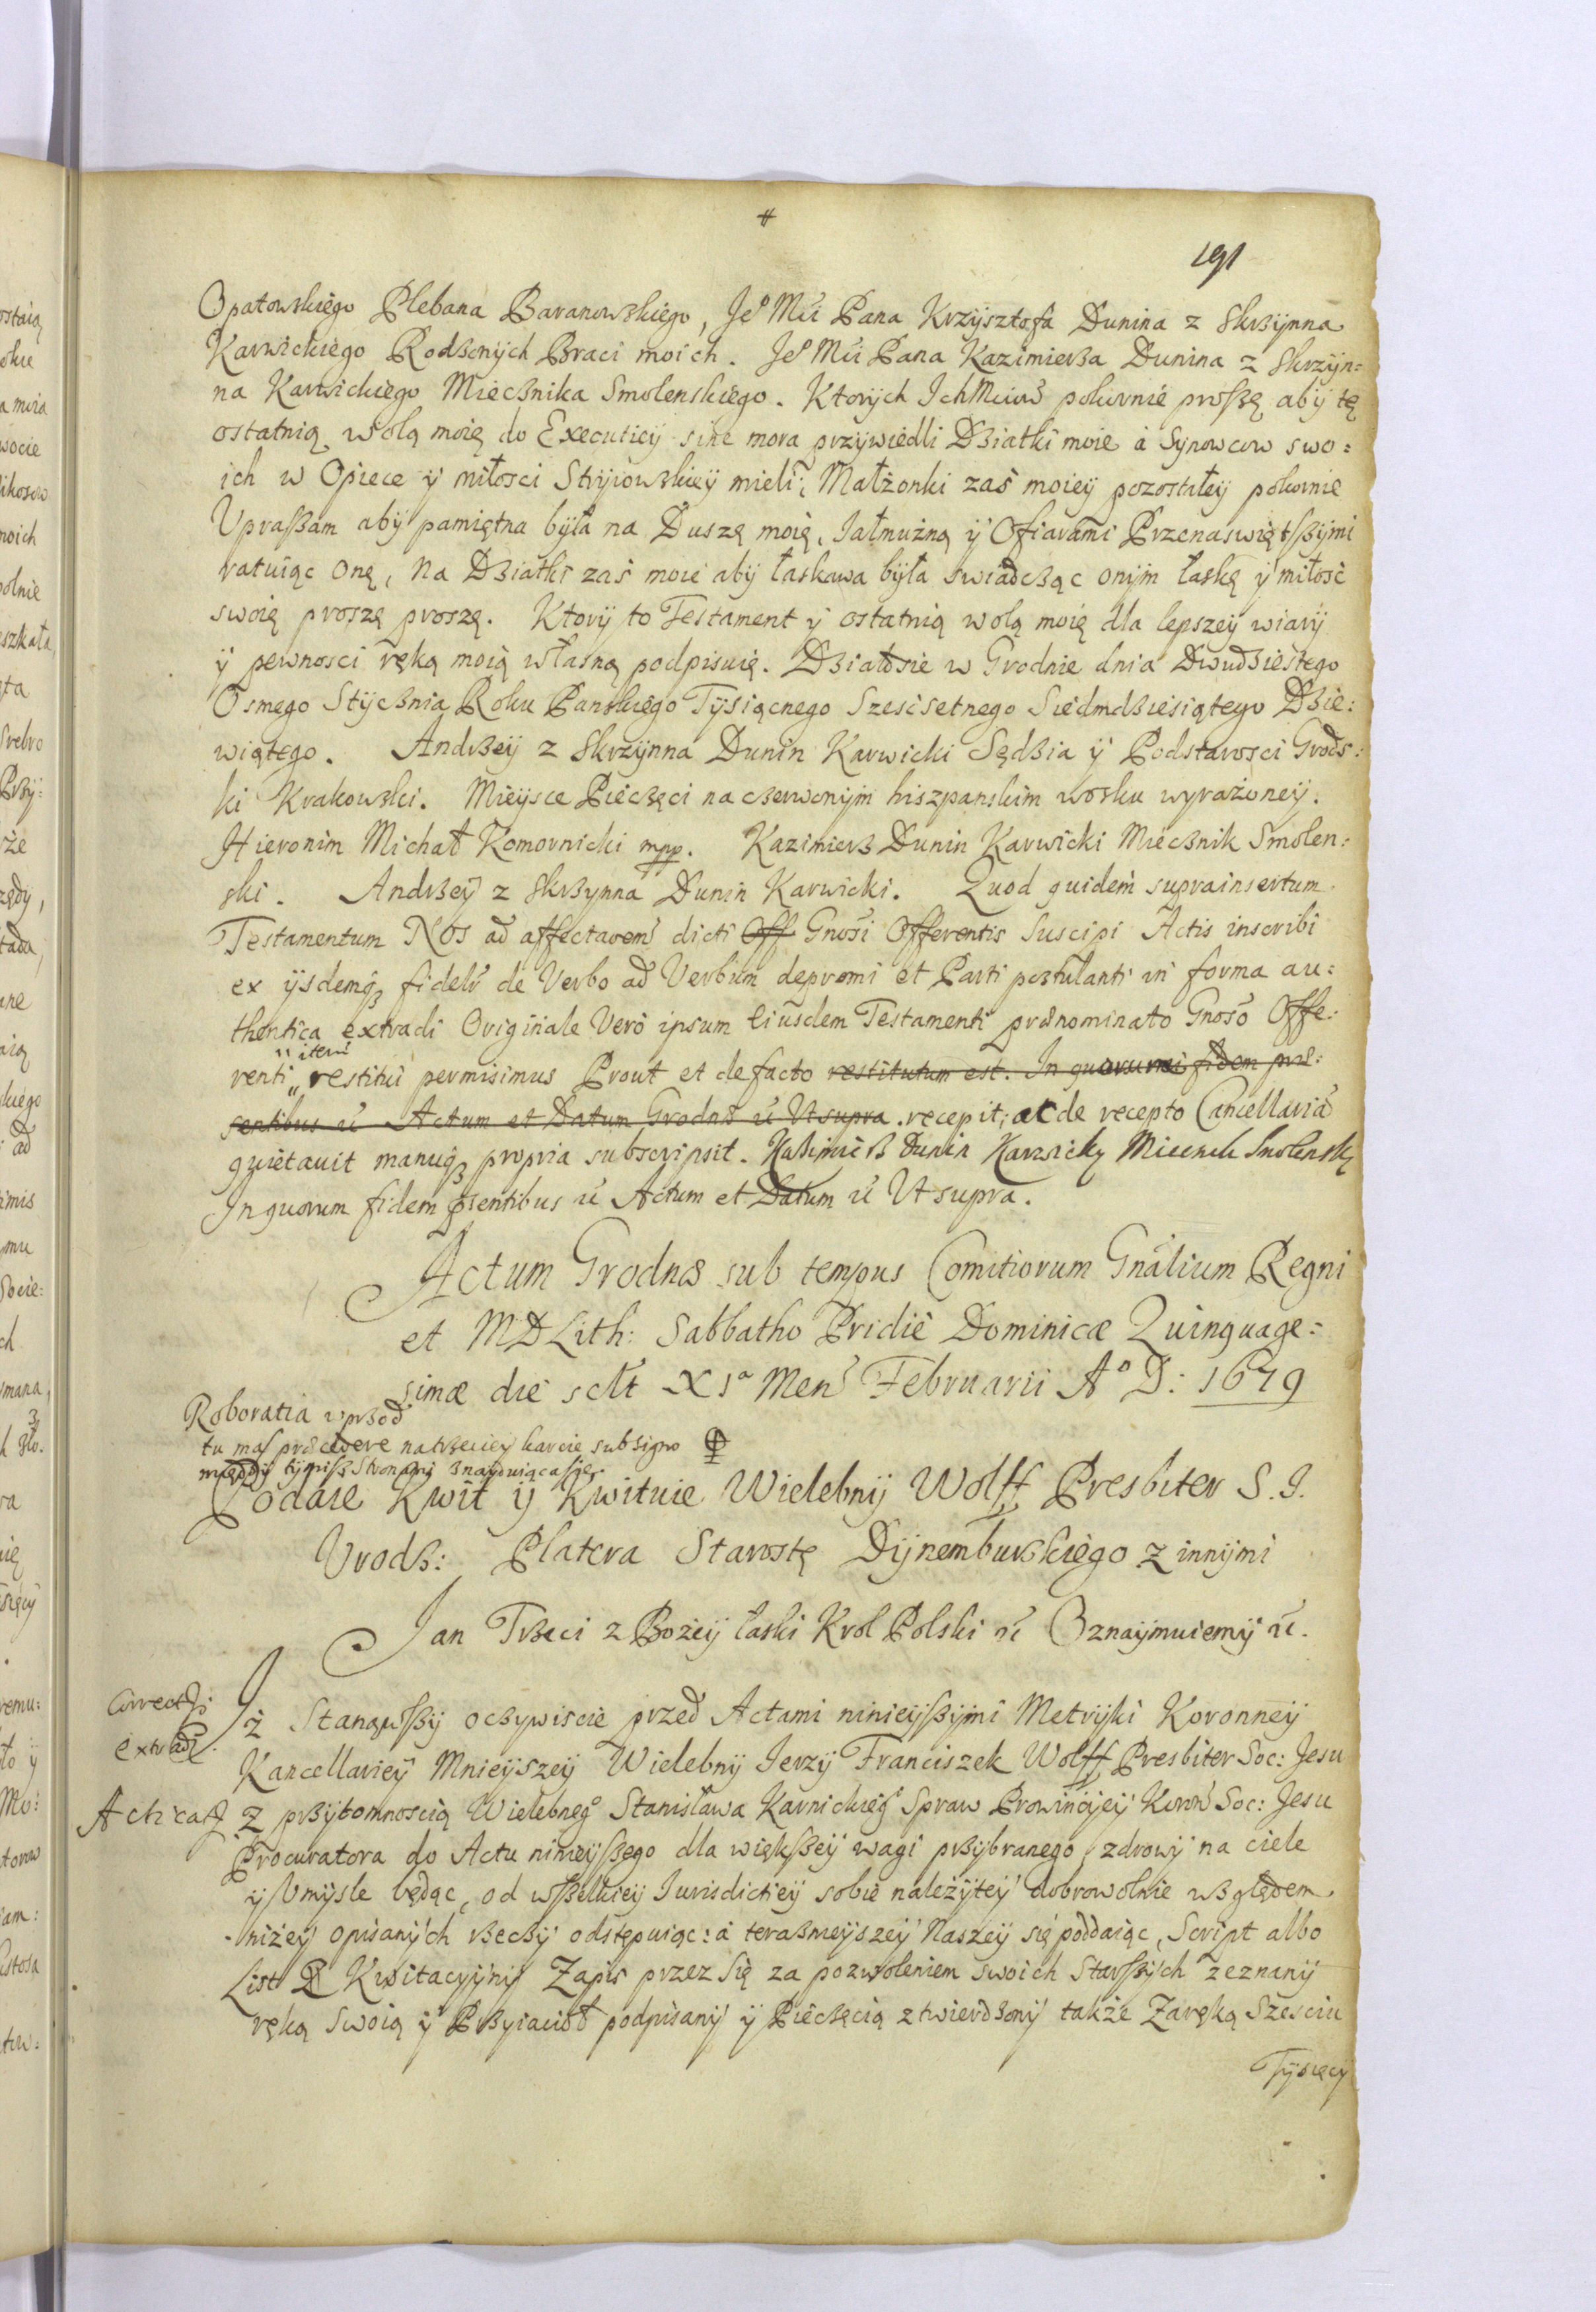 191
Opatowskiego Plebana Baranowskiego, Jeº Mći Pana Krzysztofa Dunina z Skrzynna
Karwickiego Rodzonych Braci moich. Jeº Mći Pana Kazimierza Dunina z Skrzyn=
na Karwickiego Miecznika Smolenskiego. Ktorych IchMciow pokornie proszę aby tę
ostatnią wolą moię do Executiey sine mora przywiedli Dziatki moie a Synowcow swo=
ich w Opiece y miłosci Stryiowskiey mieli; Małżonki zaś moiey pozostałey pokornie
Upraszam aby pamiętna była na Duszę moię, Iałmużną y Ofiarami Przenaswiętszymi
ratuiąc onę, Na Dziatki zaś moie aby łaskawa była swiadcząc onym łaskę y miłość
swoię proszę proszę. Ktory to Testament y ostatnią wolą moię dla lepszey wiary
y pewnosci ręką moią własną podpisuię. Działosie w Grodnie dnia Dwudziestego
Osmego Stycznia Roku Panskiego Tysiącnego Szescsetnego Siedmdziesiątego Dzie=
wiątego. Andrzey z Skrzynna Dunin Karwicki Sędzia y Podstarosci Grods=
ki Krakowski. Mieysce Pieczęci na czerwonym hiszpanskim wosku wyrażoney.
Hieronim Michał Komornicki mpp. Kazimierz Dunin Karwicki Miecznik Smolen=
ski. Andrzey z Skrzynna Dunin Karwicki. Quod quidem suprainsertum
Testamentum Nos ad affectaoem dicti Off Gnosi Offerentis Suscipi Actis inscribi
ex ysdemq3 fidelr de Verbo ad Verbum depromi et Parti postulanti in forma au=
thentica extradi Originale Vero ipsum Eiusdem Testamenti prænominato Gnoso Offe=
renti itero restitui permisimus Prout et de facto restitutum est. In quorum fidem præ=
sentibus &c Actum et Datum Grodnæ &c Ut supra. recepit; ac de recepto Cancellaria
quietavit manuq3 propria subscripsit. Kazimierz Dunin Karwicky Miecznik Smolensky
In quorum fidem psentibus &c Actum et Datum &c Ut supra.
Actum Grodnæ sub tempus Comitiorum Gnalium Regni
et MDLith: Sabbatho Pridie Dominicæ Quinquage=
simæ die sclt XIª Mens Februarii Aº D: 1679
Roboratia wprzod
tu ma præcedere na trzeciey karcie sub signo
między tymisz Stronami znayduiąca się
Podaie Kwit y Kwituie Wielebny Wolff Presbiter S. J.
Urodz: Platera Starostę Dynemburskiego z innymi
Jan Trzeci z Bożey łaski Krol Polski &c Oznaymuiemy &c.
Correct.
extrad.
Iż Stanąwszy oczywiscie przed Actami ninieyszymi Metryki Koronney
Kancellariey Mnieyszey Wielebny Ierzy Franciszek Wolff Presbiter Soc: Jesu
Acticat
z przytomnoscią Wielebnegº Stanisława Karnickiegº Spraw Prowinciey Koron Soc: Jesu
Procuratora do Actu ninieyszego dla większey wagi przybranego, zdrowy na ciele
y Umysle będąc, od wszelkiey Iurisdictiey sobie należytey dobrowolnie względem
niżey opisanych rzeczy odstępuiąc: a teraznieyszey Naszey się poddaiąc, Script albo
List Kwitacyjny Zapis przez Się za pozwoleniem swoich Starszych zeznany
ręką Swoią y Przyiacioł podpisany y Pieczęcią ztwierdzony także Zaręką Szesciu
Tysięcy